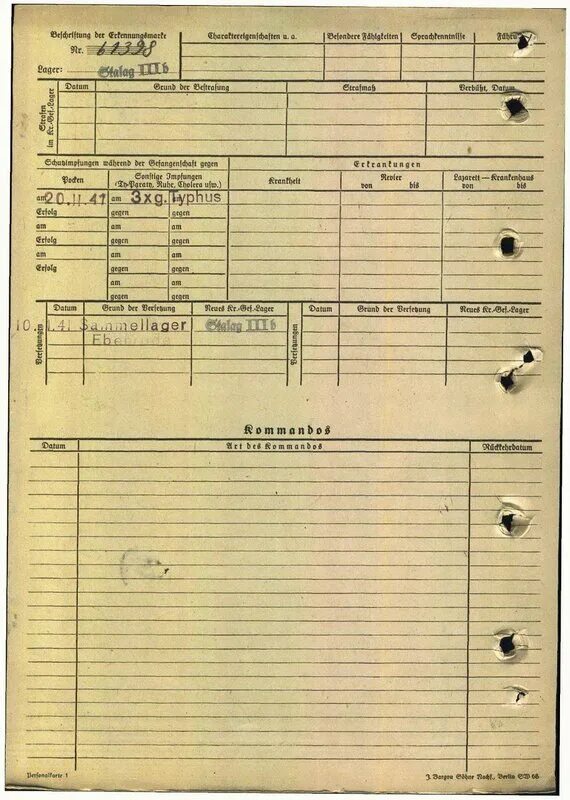 Beschriftung der Erkennungsmarke
Nr. 61398
Lager: Stalag III b
Charaktereigenschaften u. a.
Besondere Fähigkeiten
Sprachkenntnisse
Führu
Strafen im Kr.-Gef.-Lager
Datum Grund der Bestrafung Strafmaß Verbüßt, Datum
Schutzimpfungen während der Gefangenschaft gegen
Erkrankungen
Pocken
Sonstige Impfungen
(Ty-Paraty, Ruhr, Cholera usw.)
Krankheit
Revier
von bis
Lazarett – Krankenhaus
von bis
am 20.11.41 am 3xg.Typhus am
Erfolg gegen gegen
am am am
Erfolg gegen gegen
am am am
Erfolg gegen gegen
am am
gegen gegen
Versetzungen
Datum Grund der Versetzung Neues Kr.-Gef.-Lager
Versetzungen
Datum Grund der Versetzung Neues Kr.-Gef.-Lager
Sammellager Stalag III b
Kommandos
Datum Art des Kommandos Rückkehrdatum
Personalkarte 1
J. Bargou Söhne Nachf., Berlin SW 68